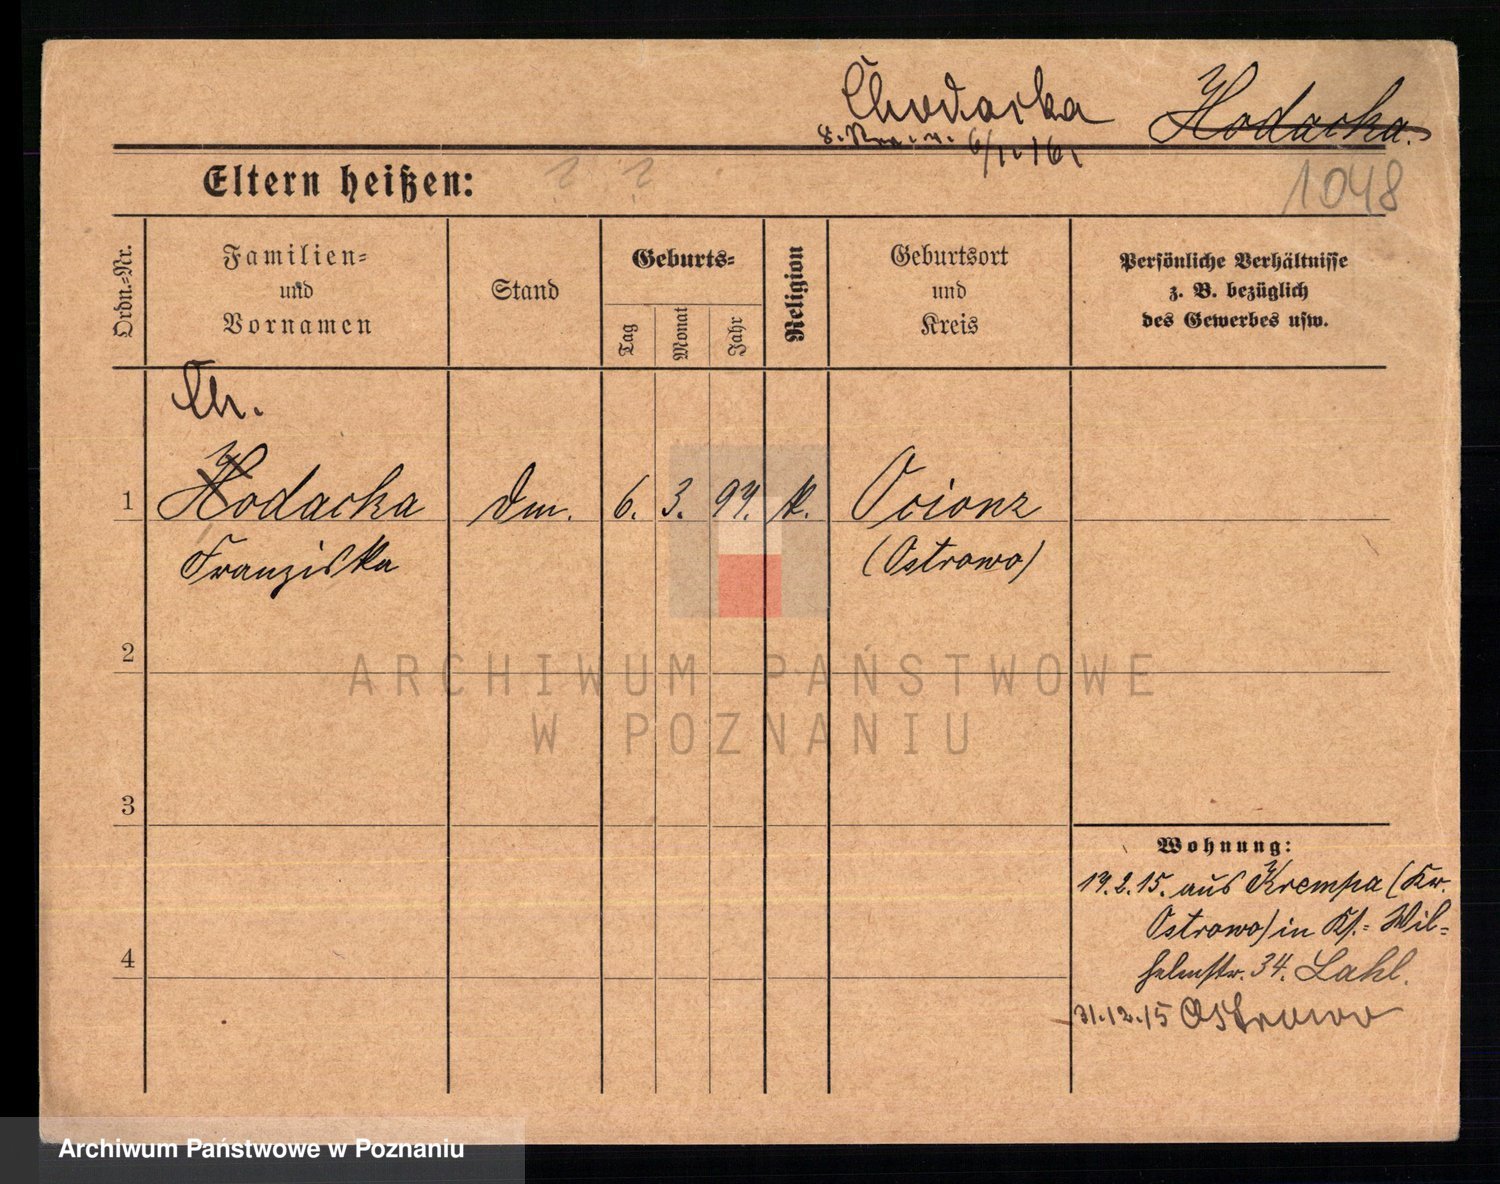 Chodacka Hodacka.
6/1. 16.
Eltern heißen: ? ?
1048
Ordn.=Nr.
Familien=
und
Vornamen
Stand
Geburts=
Tag
Monat
Jahr
Religion
Geburtsort
und
Kreis
Persönliche Verhältnisse
z. B. bezüglich
des Gewerbes usw.
Ch.
1 Hodacka Dm. 6. 3. 97. k. Ocionz
Franziska (Ostrowo)
2
ARCHIWUM PAŃSTWOWE
W POZNANIU
3
Wohnung:
19.2.15. aus Krempa (Kr.
Ostrowo) in Kf.: Wil=
helmstr. 34. Lahl.
4
31.12.15 Ostrowo
Archiwum Państwowe w Poznaniu